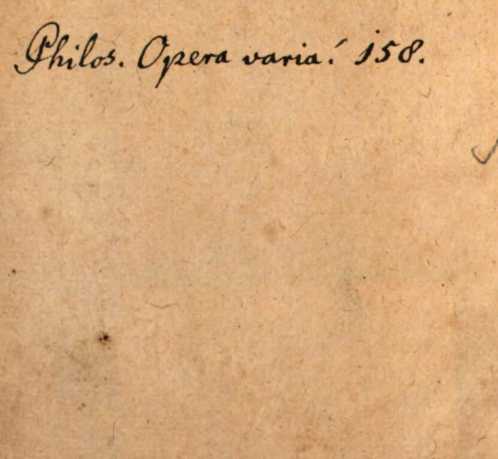 Philos. Opera varia. 158.